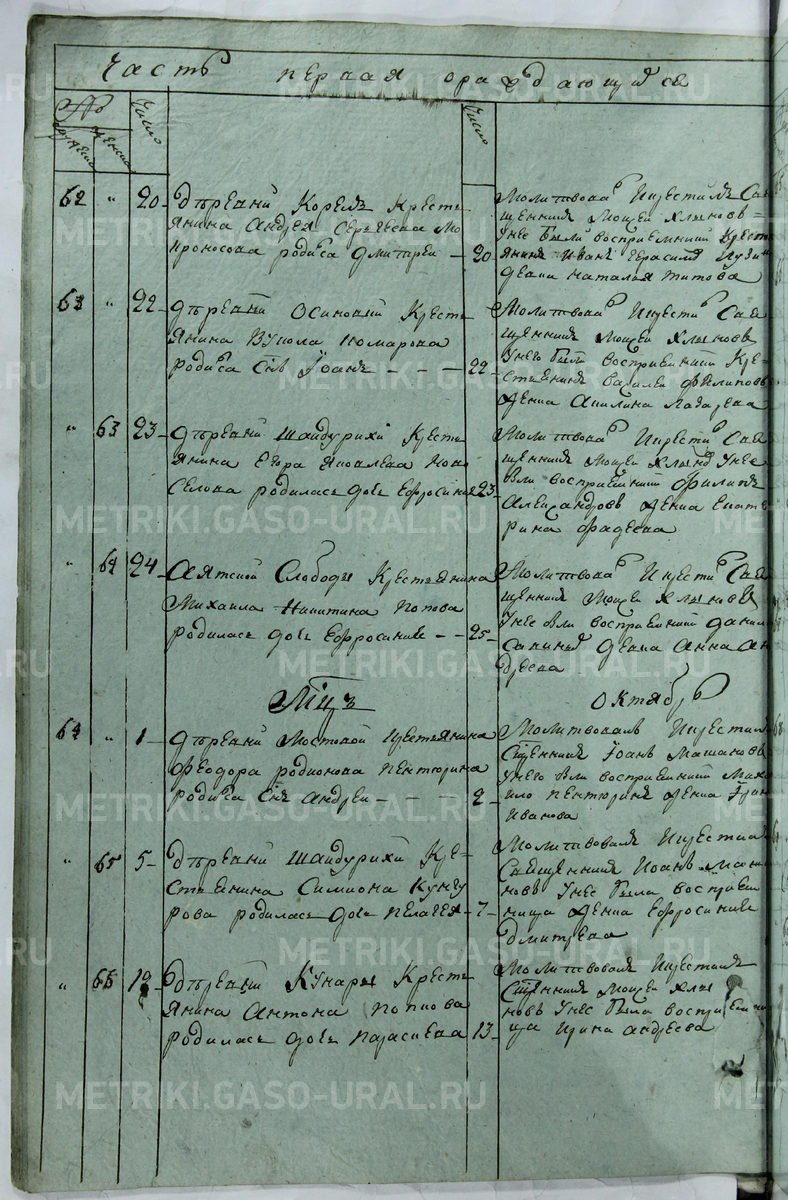 Часть первая о раждающихся
Число
Число
62 " 20 деревни Корелъ крестья
янина Андрея Сергеева Мо
родился Дмитрей — 20
Молитвовалъ и крестилъ Свя
щенникъ Моисей Хлыновъ
у нее были восприемники крест
янинъ Иванъ Герасимовъ
девка Наталья Титова
63 " 22 деревни Осиновки кресть
янина Вукола Комарова
родился сынъ Иоаннъ — — — 22
Молитвовалъ и крестилъ Свя
щенникъ Моисей Хлыновъ
у него были восприемники кре
стьянинъ Василей Филиповъ
девка Акилина Лазарева
" 63 23 деревни Шайдурихи кресть
янина Егора Яковлева Ново
селова родилась дочь Ефросинья 23
Молитвовалъ и крестилъ Свя
щенникъ Моисей Хлыновъ у нее
были восприемники Филипъ
Александровъ девка Екате
рина Фадеева
" 64 24 Аятской Слободы крестьянина
Михаила Никитина Попова
родилась дочь Ефросинья — — 25
Молитвовалъ и крестилъ Свя
щенникъ Моисей Хлыновъ
у нее были восприемники Данило
девка Анна Ан
дреева
Мцъ Октябрь
64 " 1 деревни Мостовой крестьянина
Феодора Родионова Пентюрина
родился сынъ Андрей — — — 2
Молитвовалъ и крестилъ
Священникъ Иоаннъ
у него были восприемники Миха
ило Пентюринъ девка
Иванова
" 65 5 деревни Шайдурихи кре
стьянина Симиона Кунгу
рова родилась дочь Пелагея — 7
Молитвовалъ и крестилъ
Священникъ Иоаннъ
у нее была восприем
ница девка Ефросинья
Дмитрева
" 66 12 деревни Кунары кресть
янина Антона Попкова
родилась дочь Параскева 13
Молитвовалъ и крестилъ
Священникъ Моисей Хлы
новъ у нее была восприемни
ца Ирина Андреева
METRIKI.GASO-URAL.RU